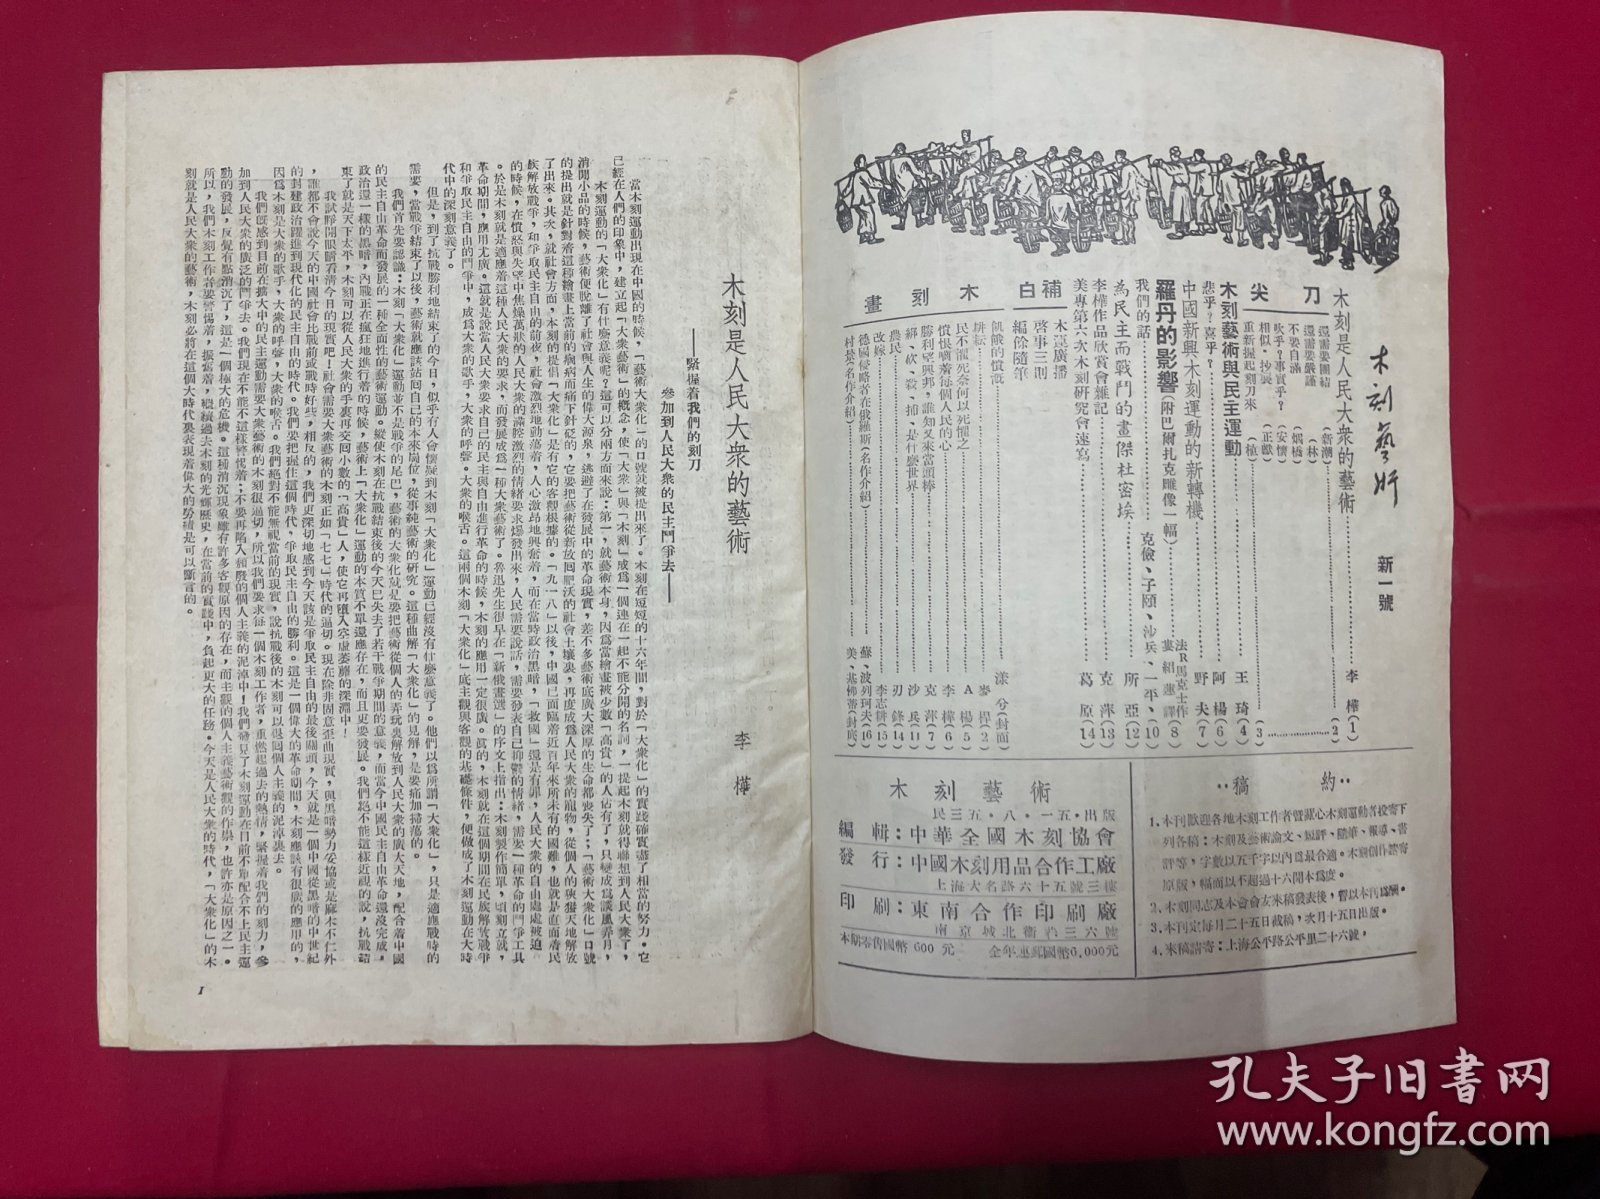 木刻藝術 新一號
木刻是人民大衆的藝術……李樺(1)
刀尖
還需要團結……(新潮)
還需要嚴謹……(林)
不要自滿……(烟橋)
吹乎?事實乎?……(安懷)
相似・抄襲……(正獻)
重新握起刻刀來……(植)
木刻藝術與民主運動……王琦(4)
悲乎?喜乎?……阿楊(6)
中國新興木刻運動的新轉機……野夫(7)
羅丹的影響(附巴爾扎克雕像一幅)
法R馬克士作
婁紹蓮譯(8)
我們的話……克儉、子頤、沙兵、一平、(10)
為民主而戰鬥的畫傑杜密埃……所亞(12)
李樺作品欣賞會雜記……克萍(13)
美專第六次木刻研究會速寫……葛原(14)
補白
木運廣播
啓事三則
編餘隨筆
木刻畫
飢餓的憤慨……漾兮(封面)
耕耘……麥桿(2)
民不濔死奈何以死懼之……A楊(5)
憤恨嚙着每個人民的心……李樺(6)
勝利望興邦，誰知又來當頭棒……克萍(7)
綁、砍、殺、捕、是什麼世界……沙兵(11)
農民……刃鋒(14)
改嫁……李志耕(15)
德國侵略者在俄羅斯(名作介紹)……蘇、波列珂夫(16)
村婪(名作介紹)……美、基佛蒂(封底)
稿約
1、本刊歡迎各地木刻工作者暨關心木刻運動者投寄下
列各稿：木刻及藝術論文、短評、隨筆、報導、書
評等，字數以五千字以內爲最合適。木刻創作請寄
原版，幅面以不超過十六開本爲度。
2、木刻同志及本會會友來稿發表後，暫以本刊爲酬。
3、本刊定每月二十五日截稿，次月十五日出版。
4、來稿請寄：上海公平路公平里二十六號，
木刻藝術
民三五・八・一五・出版
編輯：中華全國木刻協會
發行：中國木刻用品合作工廠
上海大名路六十五號三樓
印刷：東南合作印刷廠
南京城北衞巷三六號
本期零售國幣600元 全年連郵國幣6,000元
木刻是人民大衆的藝術
——緊握着我們的刻刀
參加到人民大衆的民主鬥爭去——
李樺
當木刻運動出現在中國的時候，「藝術大衆化」的口號就被提出來了。木刻在短短的十六年間，對於「大衆化」的實踐確實盡了相當的努力。它
已經在人們的印象中，建立起「大衆藝術」的概念，使「大衆」與「木刻」成爲一個連在一起不能分開的名詞，一提起木刻就得聯想到人民大衆了，
木刻運動的「大衆化」有什麼意義呢？這可以分兩方面來說：第一，就藝術本身，因爲當繪畫被少數「高貴」的人佔有了，只變成爲談風弄月，
消閒小品的時候，藝術便脫離了社會與人生的偉大源泉，逃避了在發展中的革命現實，差不多藝術底廣大深厚的生命都喪失了；「藝術大衆化」口號
的提出就是針對着這種繪畫上當前的病痾而痛下針砭的，它要把藝術從新放回肥沃的社會土壤裏，再度成爲人民大衆的寵物，從個人的桎梏天地解放
了出來。其次，就社會方面，木刻的提倡「大衆化」是有它的客觀根據的。「九一八」以後，中國已面臨着近百年來所未有的國難，也就是直面着民
族解放戰爭，和爭取民主自由的前夜，社會激烈地動蕩着，人心激昂地興奮着，而在當時政治黑暗，「救國」還是有罪，人民大衆的自由處處被迫
的時候，在憤怒與失望中焦燥萬狀的人民大衆的滿腔激烈的情緒要求爆發出來，人民需要說話，需要發表自己抑鬱的情緒，需要一種革命的鬥爭工具
。於是木刻就是適應着這種人民大衆的要求，而發展成爲一種大衆藝術了。魯迅先生很早在「新俄畫選」的序文上指出：木刻製作簡單，頃刻立就，
革命期間，應用尤廣。這就是說當人民大衆要求自己的民主與自由進行革命的時候，木刻的應用一定很廣。眞的，木刻就在這個期間在民族解放戰爭
和爭取民主自由的鬥爭中，成爲大衆的歌手，大衆的呼聲，大衆的喉舌。這兩個木刻「大衆化」底主觀與客觀的基礎條件，便做成了木刻運動在大時
代中的深刻意義了。
但是，到了抗戰勝利地結束了的今日，似乎有人會懷疑到木刻「大衆化」運動已經沒有什麽意義了。他們以爲所謂「大衆化」，只是適應戰時的
需要，當戰爭結束了以後，藝術就應該站回自己的本來崗位，從事純藝術的研究。這種曲解「大衆化」的見解，是要痛加掃蕩的。
我們首先要認識：木刻「大衆化」運動並不是戰爭的尾巴，藝術的大衆化就是要把藝術從個人的弄玩裏解放到人民大衆的廣大天地，配合着中國
的民主自由革命而發展的一種全面性的藝術運動。縱使木刻在抗戰結束後的今天已失去了若干戰爭期間的意義，而當今中國民主自由革命還沒完成，
政治還一樣的黑暗，內戰正在瘋狂地進行着的時候，藝術上「大衆化」運動的本質不單還應存在，而且更要發展。我們絕不能這樣近視的說，抗戰結
束了就是天下太平，木刻可以從人民大衆的手裏再交回小數的「高貴」人，使它再墮入空虛萎靡的深淵中！
我試睜開眼睛看清今日的現實吧！社會需要大衆藝術的木刻正如「七七」時代的逼切。現在除非固意歪曲現實，與黑暗勢力妥協或是麻木不仁外
，誰都不會說今天的中國社會比戰前或戰時好些，相反的，我們更深切地感到今天該是爭取民主自由的最後關頭，今天就是一個中國從黑暗的中世紀
的封建政治躍進到現代化的民主自由的時代。我們要把握住這個時代，爭取民主自由的勝利。這是一個偉大的革命期間，木刻應該有很廣的應用的，
因爲木刻是大衆的歌手，大衆的呼聲，大衆的喉舌。我們絕對不能無視當前的現實，說抗戰後的木刻可以退囘個人主義的泥淖裏去。
我們旣感到目前在擴大中的民主運動需要大衆藝術的木刻很逼切，所以我們要求每一個木刻工作者，重燃起過去的熱情，緊握着我們的刻刀，參
加到人民大衆的廣泛的鬥爭去。我們現在不能不這樣警惕着；不要再陷入頹廢的個人主義的泥淖中！我們發見了木刻運動在目前不單配合不上民主運
動的發展，反覺有點消沉了，這是一個極大的危機。這種消沉現象雖有許多客觀原因的存在，而主觀的個人主義藝術觀的作祟，也許亦是原因之一。
所以，我們木刻工作者要警惕着，振奮着，繼續過去木刻的光輝歷史，在當前的實踐中，負起更大的任務。今天是人民大衆的時代，「大衆化」的木
刻就是人民大衆的藝術，木刻必將在這個大時代裏表現着偉大的勞績是可以斷言的。
1
孔夫子旧书网
www.kongfz.com